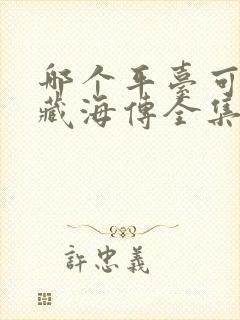 哪个平臺可
藏海傳全集
許忠義